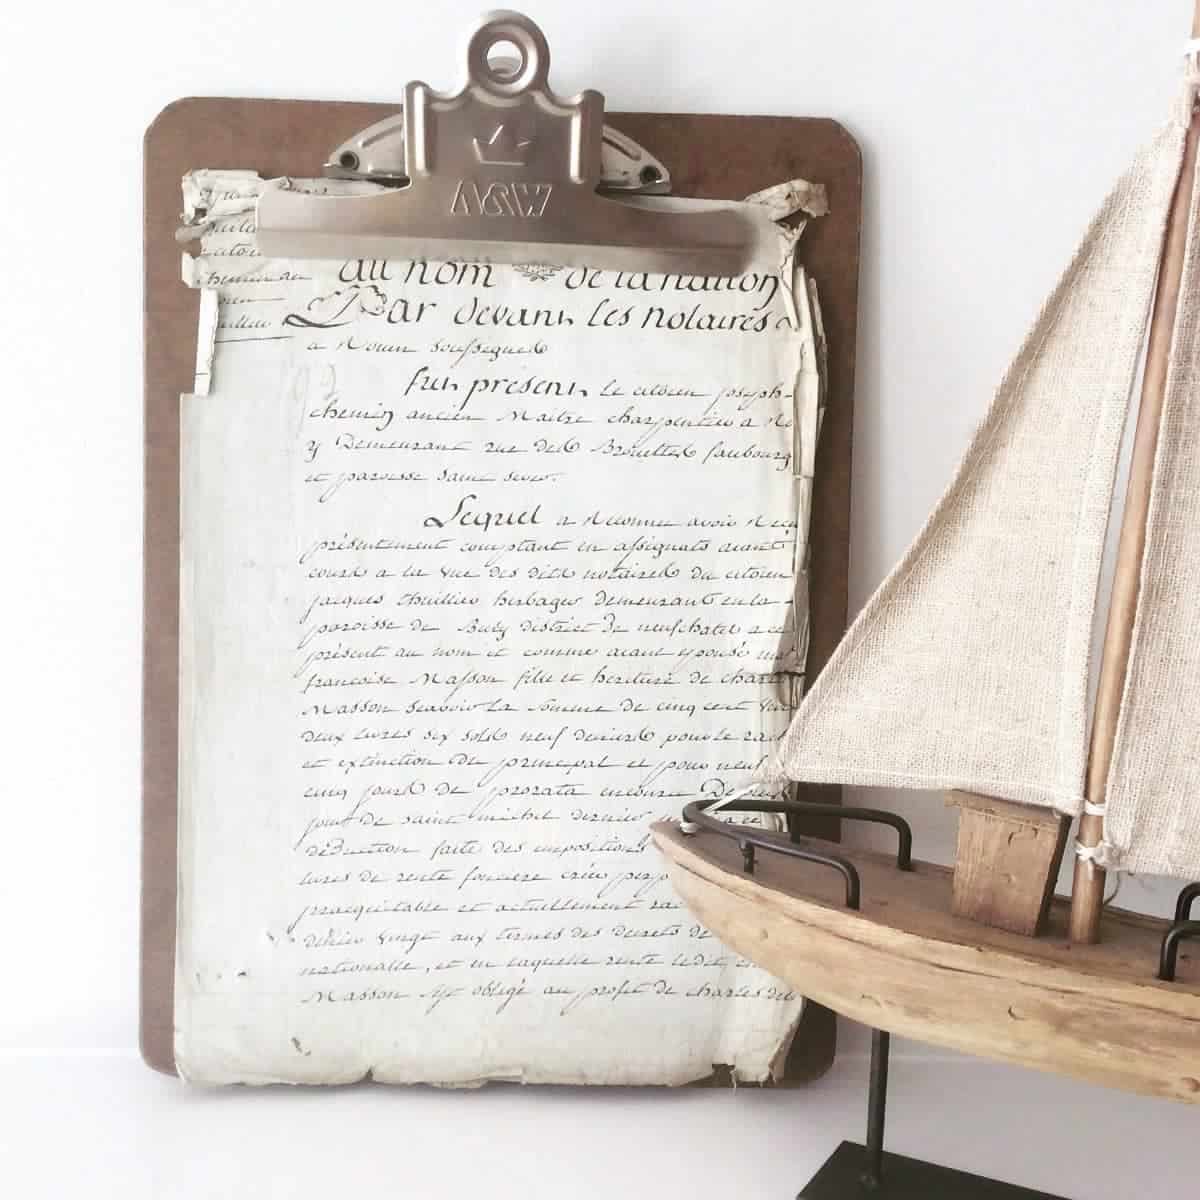 A&W
au nom de la nation
Par devant les notaires
a Rouen soussignés
fut present le citoen joseph
chemin ancien Maitre charpentier a
y Demeurant rue des Brouettes faubourg
et paroisse saint sever.
Lequel a Reconnu avoir Recu
présentement comptant en assignats aiant
cours a la vue des dits notaires du citoien
jacques thuillier herbager demeurant en la
paroisse de Bully district de neufchatel a ce
présent au nom et comme aiant epousé
francoise Masson fille et heritiere de charles
Masson scavoir la somme de cinq cent
deux livres six sols neuf deniers pour le
et extinction du principal et pour neuf
cinq jours de prorata encouru Depuis
jour de saint michel dernier
déduction faite des impositions
livres de rente fonciere créée
et actuellement
denier vingt aux termes des decrets de
nationalle, et en laquelle rente ledit
Masson s'est obligé au profit de charles